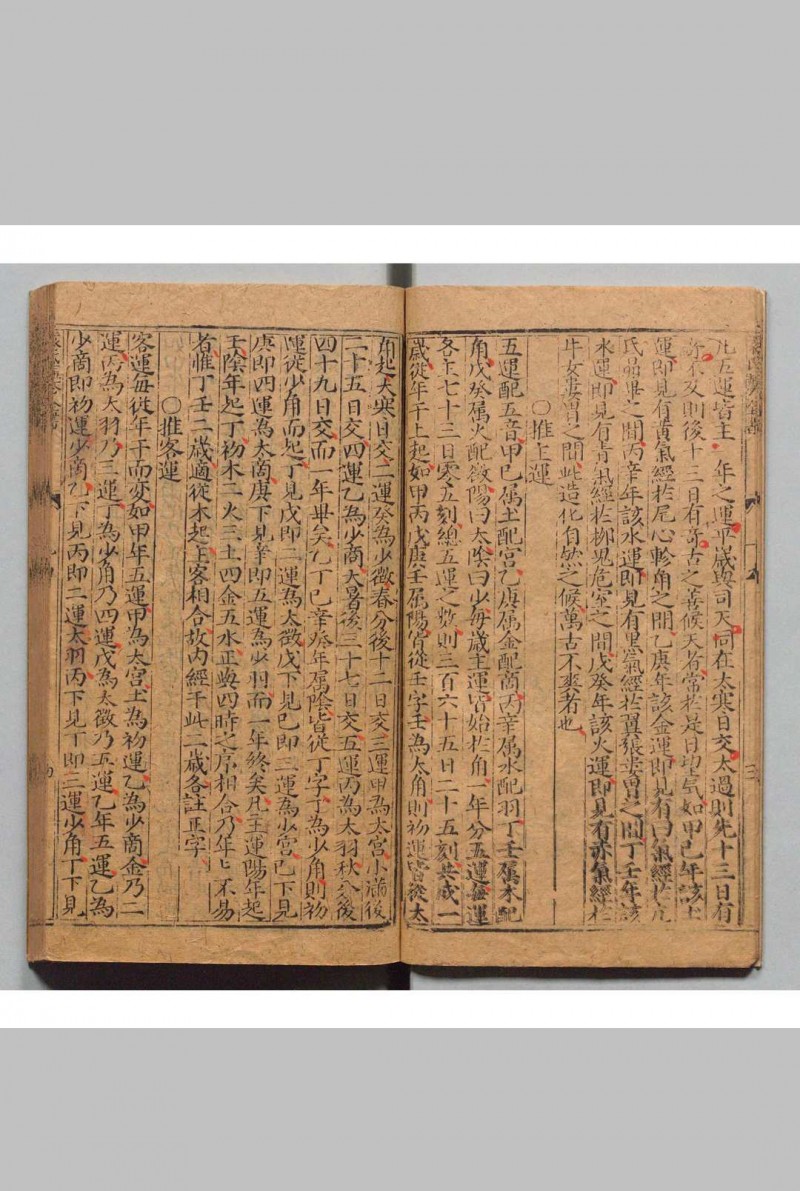 凡五運皆主一年之運平歲與司天同在大寒日交太過則先十三日有
奇不及則後十三日有奇古之善候天者常於是日望氣如甲己年該土
運即見有黃氣經於尾心軫角之間乙庚年該金運即見有白氣經於亢
氐昴畢之間丙辛年該水運即見有黑氣經於翼張婁胃之間丁壬年該
木運即見有青氣經於柳鬼危室之間戊癸年該火運即見有赤氣經於
牛女婁胃之間此造化自然之候萬古不爽者也
○推主運
五運配五音甲己屬土配宮乙庚屬金配商丙辛屬水配羽丁壬屬木配
角戊癸屬火配徵陽曰太陰曰少每歲主運皆始於角一年分五運每運
各主七十三日零五刻總五運之數則三百六十五日二十五刻共成一
歲從年干上起如甲丙戊庚壬屬陽皆從壬字壬為太角則初運皆從太
角起大寒日交二運癸為少徵春分後十二日交三運甲為太宮小滿後
二十五日交四運乙為少商大暑後三十七日交五運丙為太羽秋分後
四十九日交而一年畢矣乙丁己辛癸年屬陰皆從丁字丁為少角則初
運從少角而起丁見戊即二運為太徵戊下見己即三運為少宮己下見
庚即四運為太商庚下見辛即五運為少羽而一年終矣凡主運陽年起
壬陰年起丁初木二火三土四金五水正與四時之序相合乃年匕不易
者惟丁壬二歲適從木起主客相合故內經于此二歲各註正字
○推客運
客運每從年干而変如甲年五運甲為太宮土為初運乙為少商金乃二
運丙為太羽乃三運丁為少角乃四運戊為太徵乃五運乙年五運乙為
少商即初運少商乙下見丙即二運太羽丙下見丁即三運少角丁下見